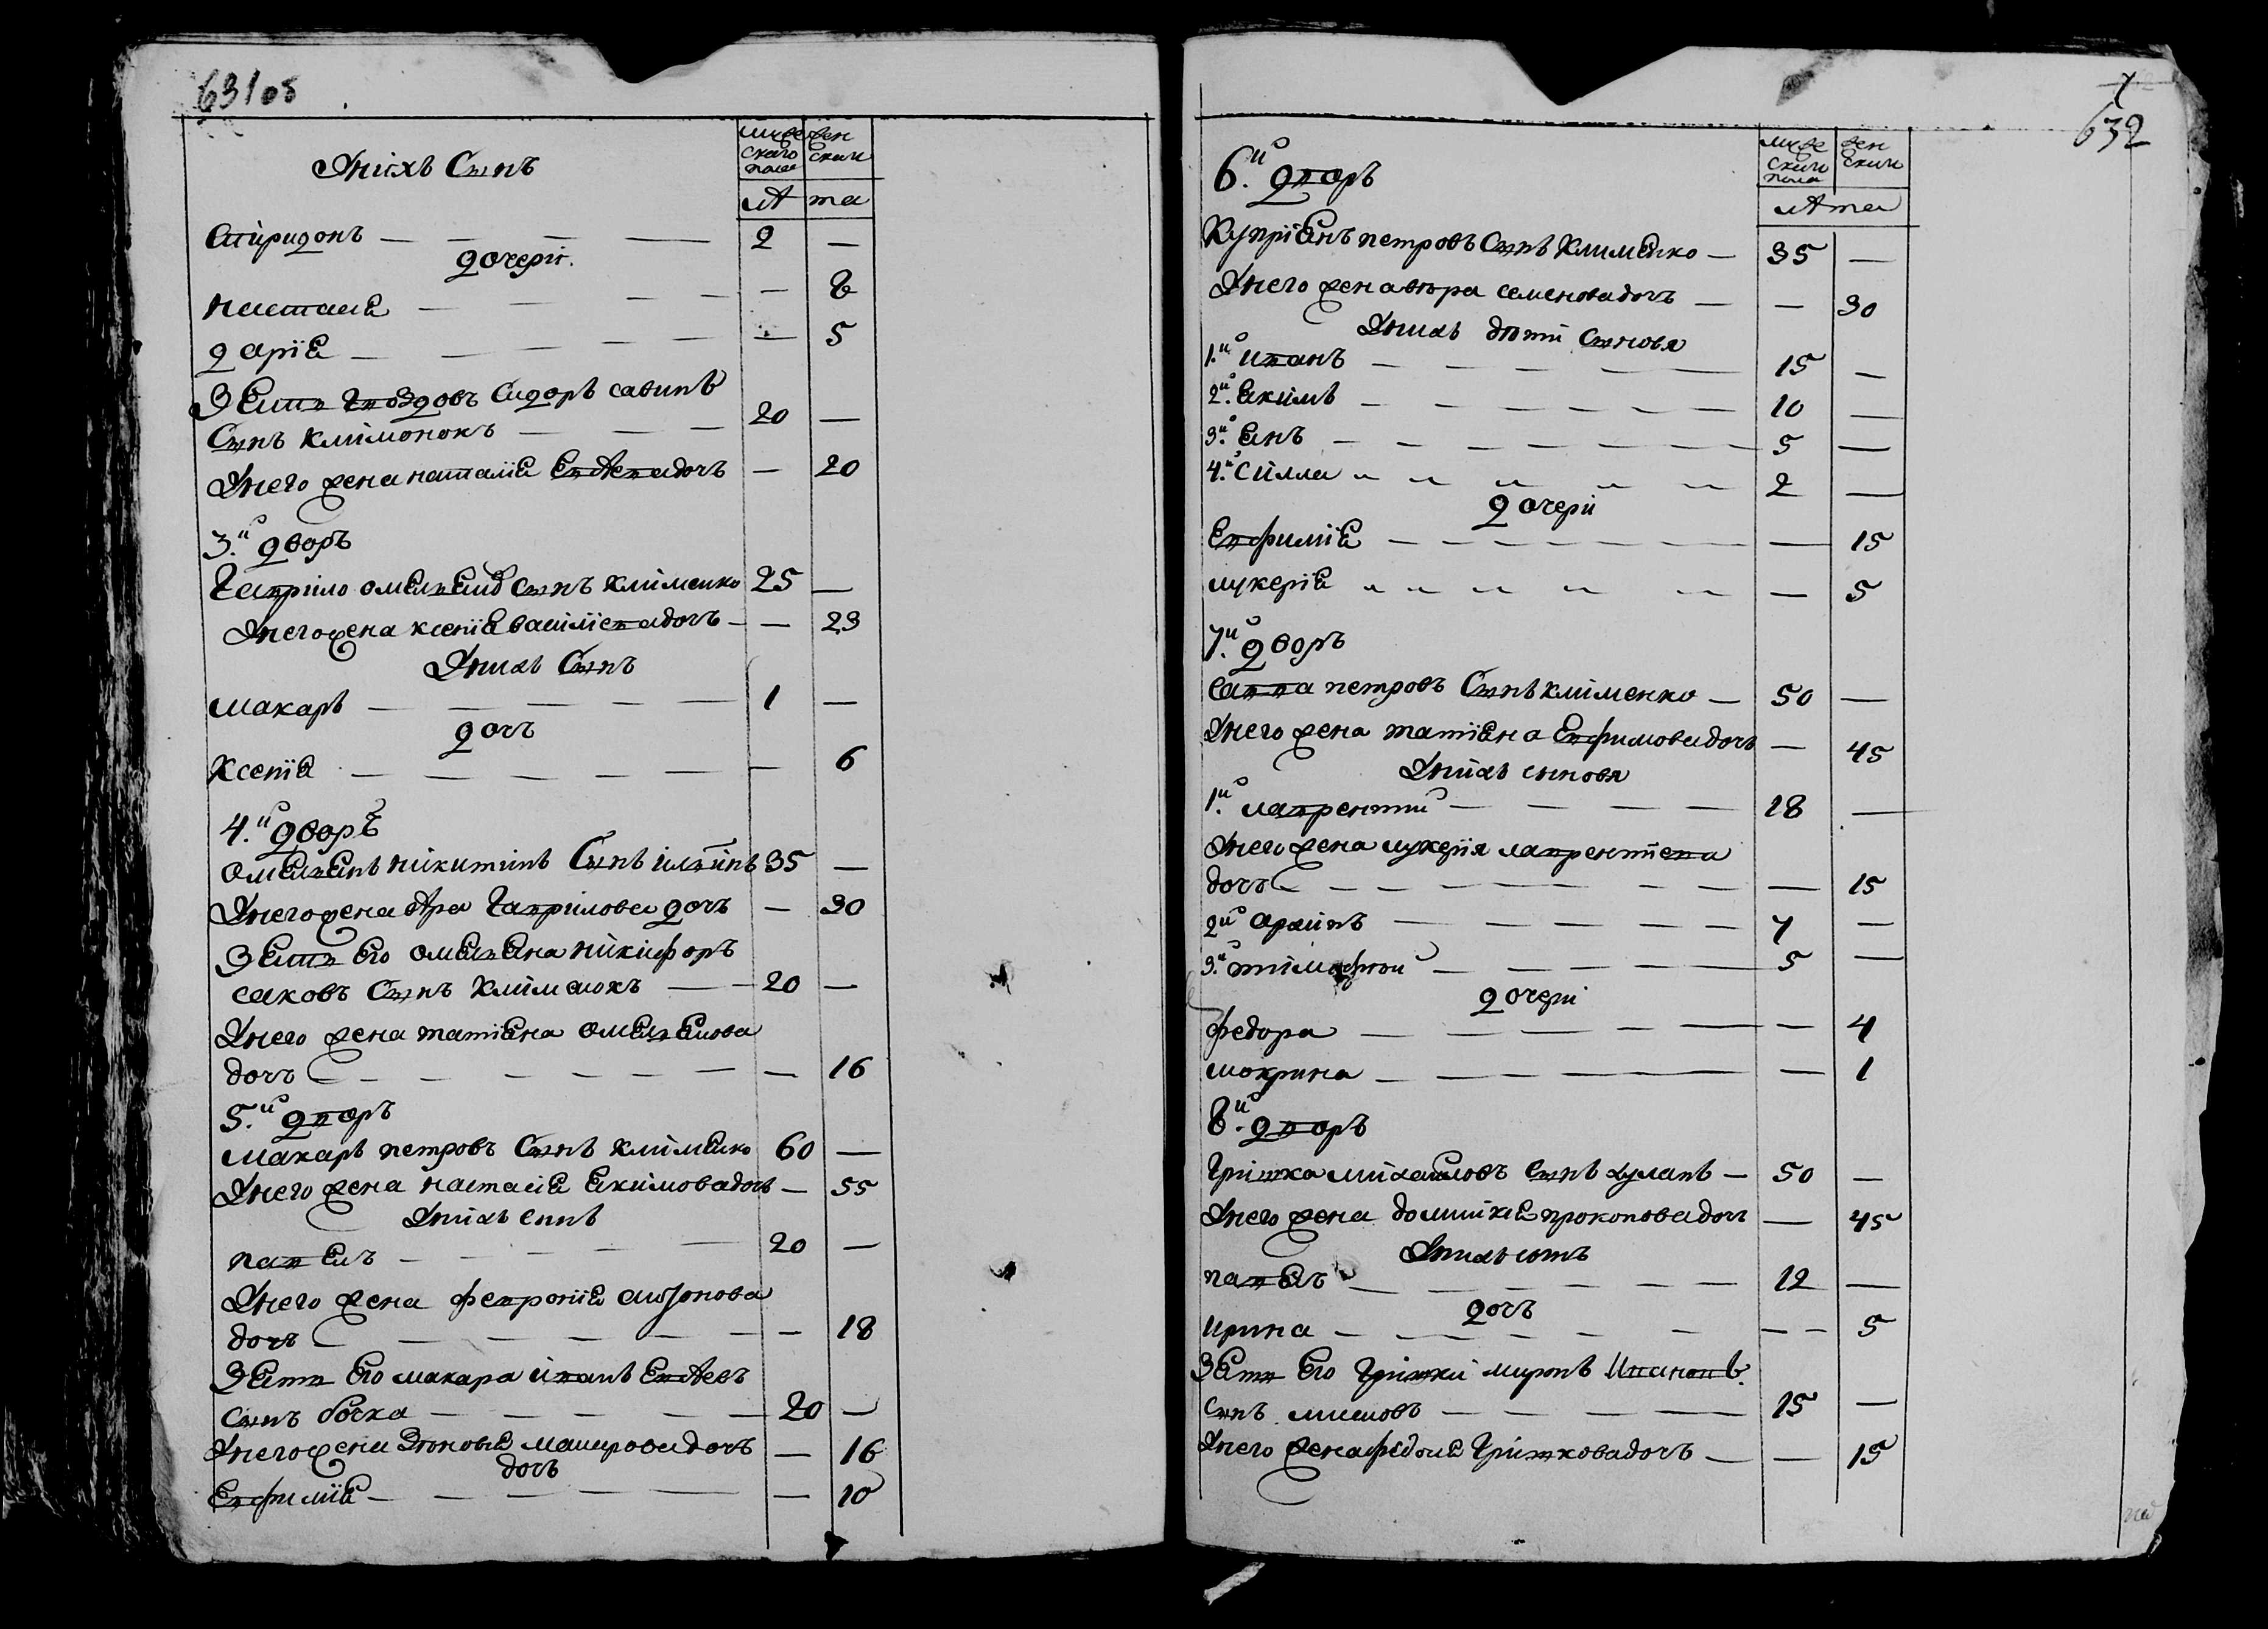 631 об
мужескаго пола женскаго
лѣта
Унихъ Сынъ
Спиридонъ — 2 —
дочери.
Настасия — — 8
дария — — 5
Зять Гвоздовъ Сидоръ савинъ
Сынъ Климонокъ — 20 —
Унего жена наталия Евлева дочъ — 20
3.й дворъ
Гаврило омельяновъ Сынъ клименко 25 —
Унего жена ксения василиева дочъ — — 23
Унихъ Сынъ
макаръ — 1 —
дочъ
Ксения — — 6
4.й дворъ
омельянъ никитинъ Сынъ ильинъ 35 —
Унего жена Гаврилова дочъ — 30
Зять Его омельяна никифоръ
саковъ Сынъ климонокъ — 20 —
Унего жена татияна омельянова
дочъ — — 16
5.й дворъ
макаръ петровъ Сынъ клименко 60 —
Унего жена настасия якимова дочъ — 55
Унихъ сынъ
павелъ — 20 —
Унего жена феврония
дочъ — — 18
Зять Его макара иванъ Евлевъ
сынъ бочка — 20 —
Унего жена зеновия макарова дочъ — 16
дочъ
Евфимия — — 10
632
мужескаго пола женскаго
лѣта
6.й дворъ
Куприянъ петровъ Сынъ Клименко — 35 —
Унего жена вѣра семенова дочъ — — 30
Унихъ дѣти Сыновя
1.й иванъ — 15 —
2.й якимъ — 10 —
3.й янъ — 5 —
4.й Силла 2 —
дочери
Евфимия — — 15
лукерия — 5
7.й дворъ
савва петровъ Сынъ клименко — 50 —
Унего жена татияна Евфимова дочъ — 45
Унихъ сыновя
1.й лаврентий — 18 —
Унего жена лукерия лаврентиева
дочъ — — 15
2й архипъ — 7 —
3.й тимофѣй — 5 —
дочери
федора — — 4
мокрина — — 1
8.й дворъ
Гришка михайловъ Сынъ — 50 —
Унего жена домникия прокопова дочъ — 45
Унихъ сынъ
павелъ — 12 —
дочъ
ирина — — 5
Зять Его Гришки миронъ Ивановъ
сынъ — 15 —
Унего жена федосия Гришкова дочъ — — 15